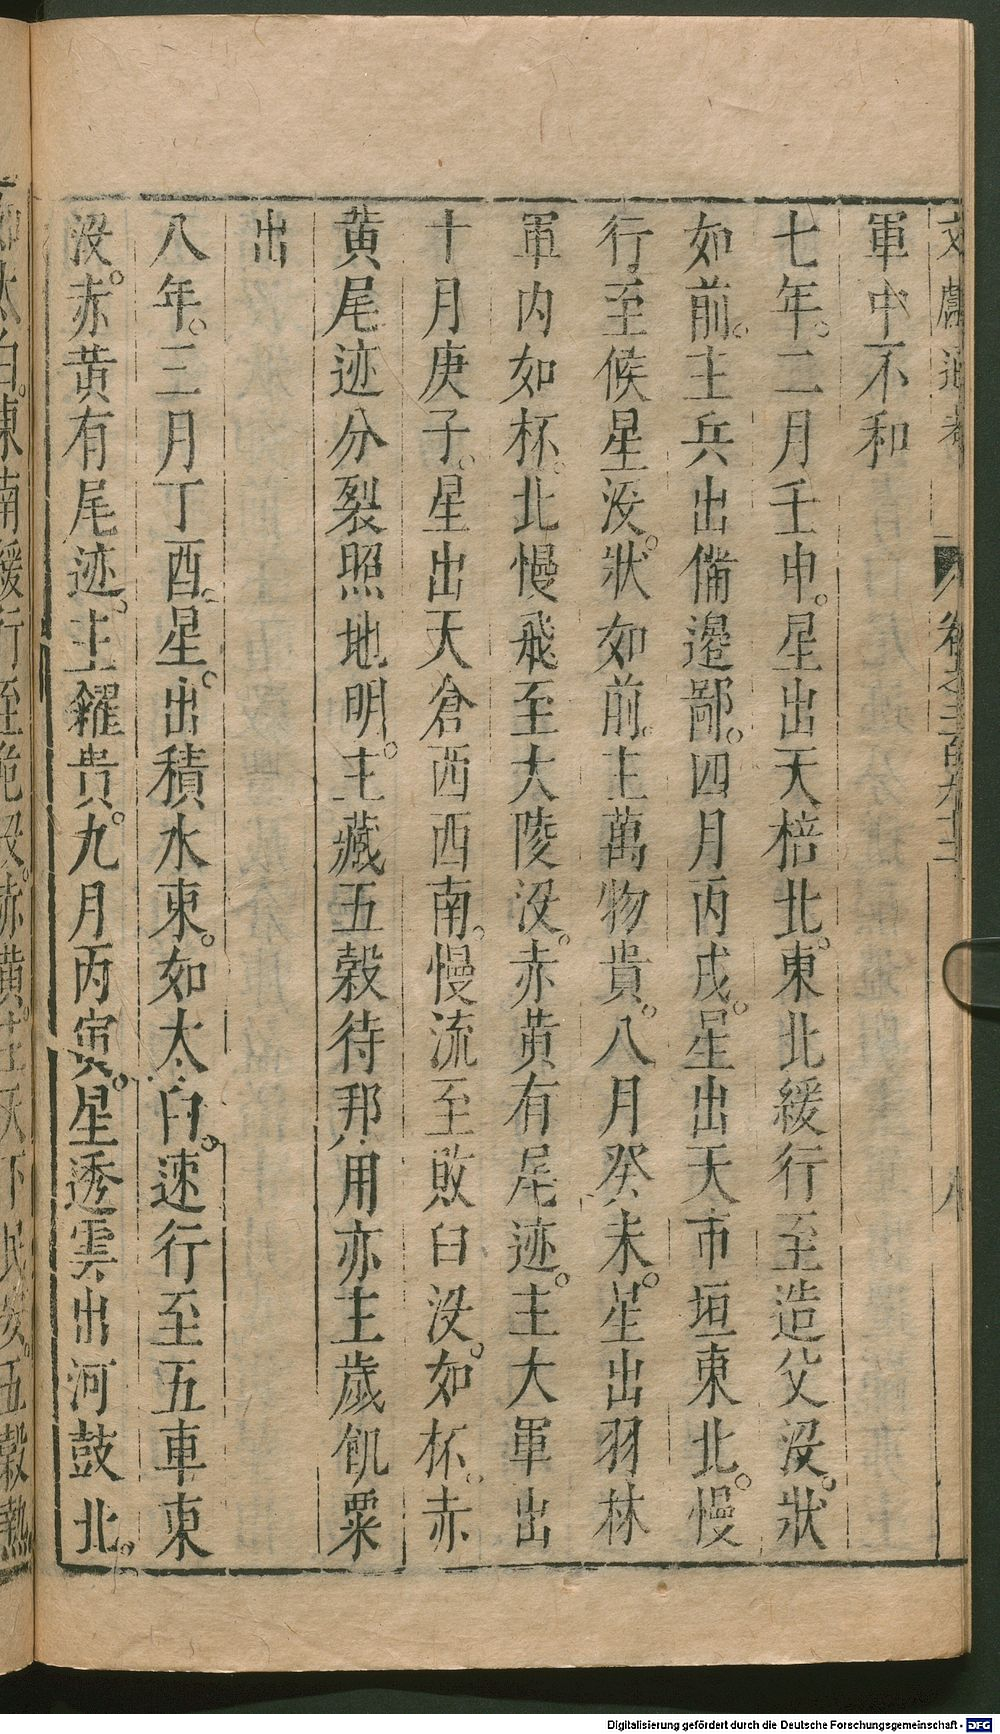 文獻通考 卷之二百九十二 八
軍中不和
七年。二月壬申。星出天棓北。東北緩行至造父沒。狀
如前。主兵出備邊鄙。四月丙戌。星出天市垣東北。慢
行至候星沒。狀如前。主萬物貴。八月癸未。星出羽林
軍內如杯。北慢飛至大陵沒。赤黃有尾迹。主大軍出
十月庚子。星出天倉西西南。慢流至敗臼沒。如杯。赤
黃尾迹分裂照地明。主藏五穀待邦用亦主歲飢粟
出
八年。三月丁酉。星。出積水東。如太白。速行至五車東
沒。赤黃有尾迹。主糴貴。九月丙寅。星透雲出河鼓北。
如太白。東南緩行至危沒。赤黃。主天下民安。五穀熟
Digitalisierung gefördert durch die Deutsche Forschungsgemeinschaft - DFG